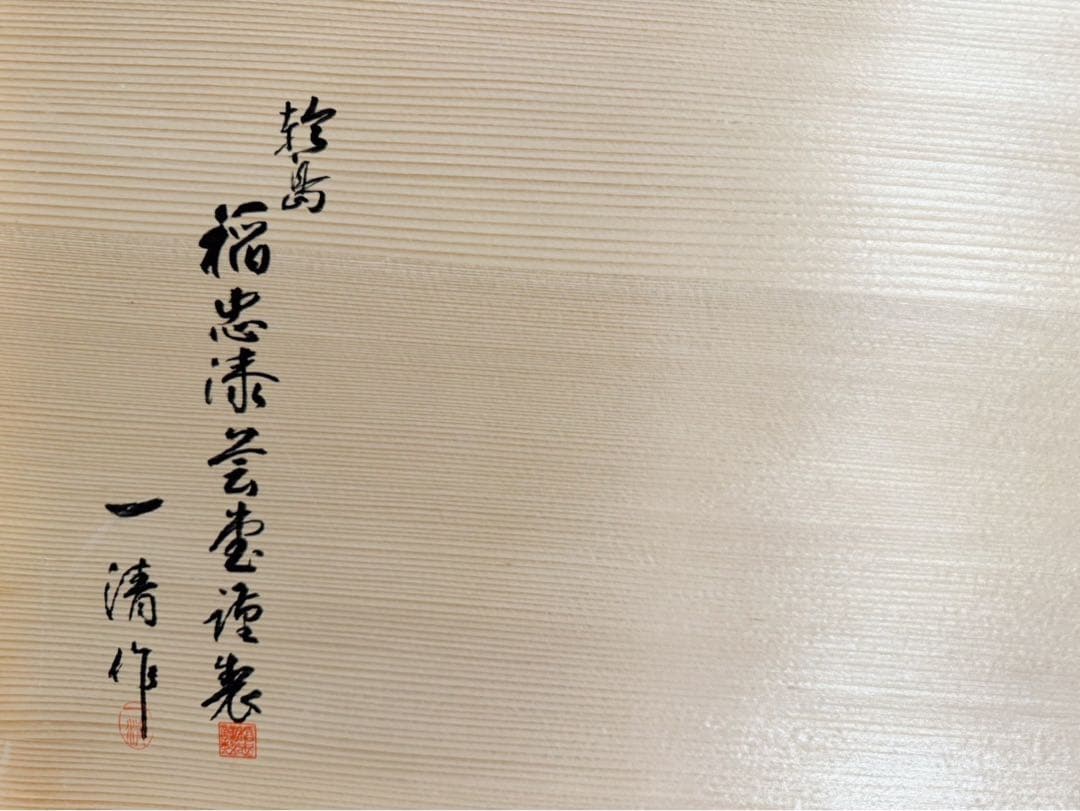 輪島
稲忠漆芸堂謹製
一清作